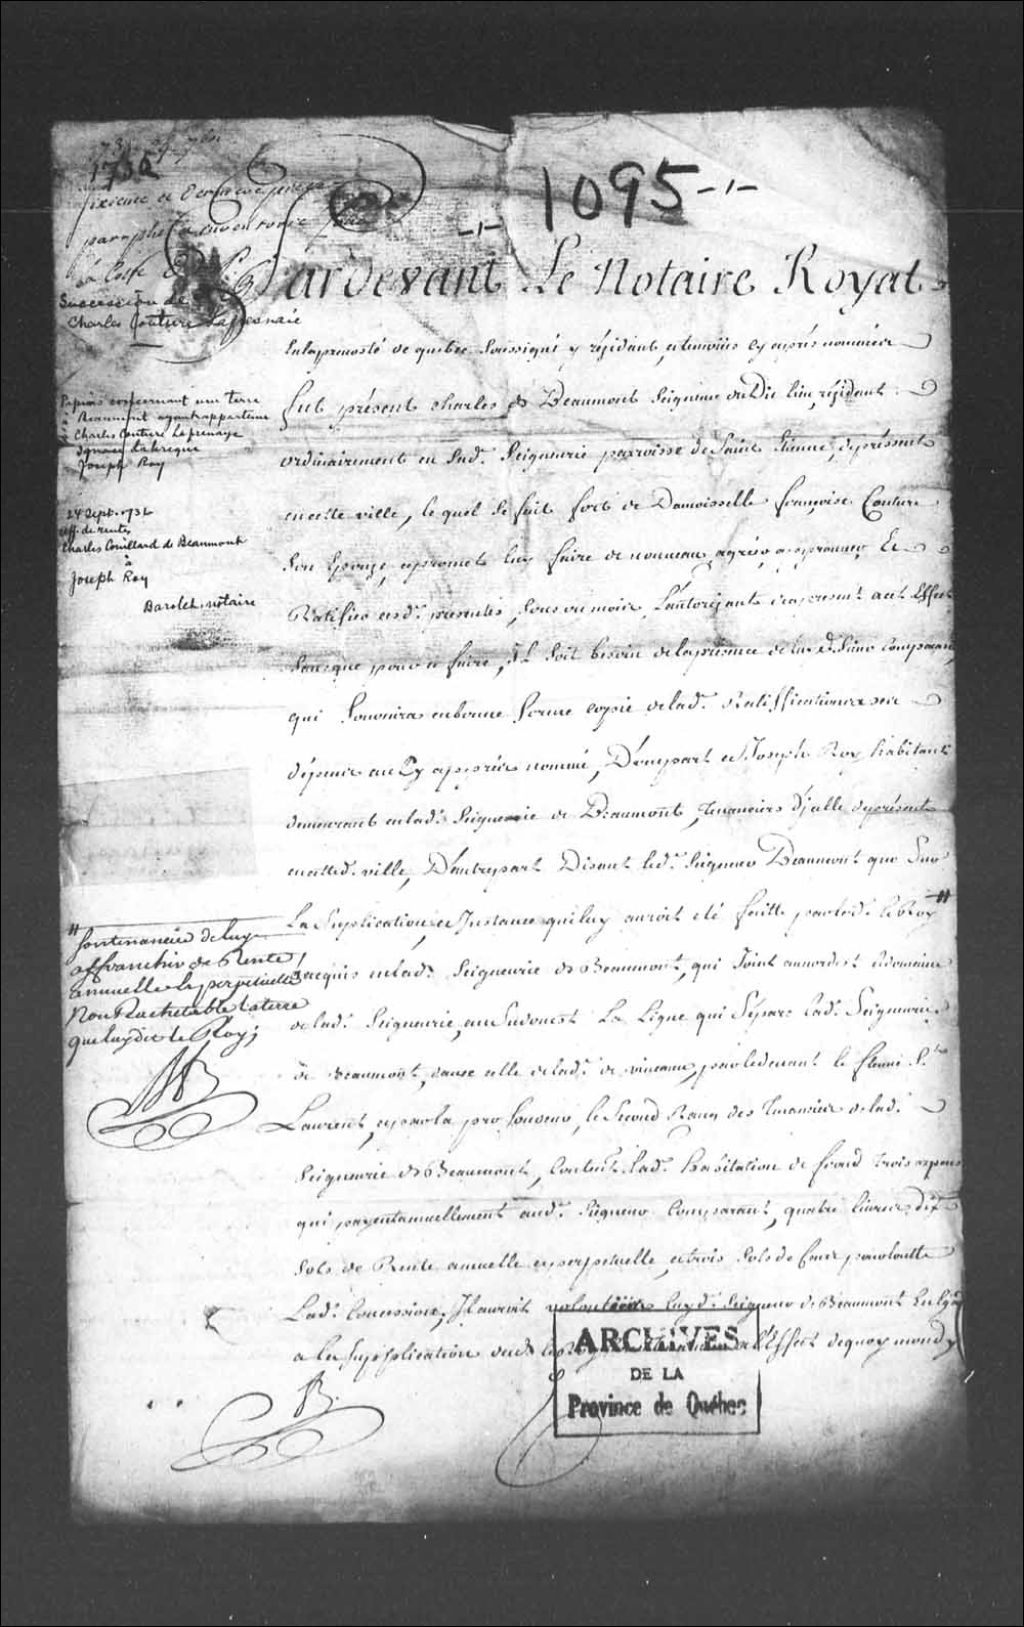 1732
1095
sixieme et derniere piece
paraphé Inventorié
la Coste
Succession de
Charles Couture Lafresnaie
Papiers concernant une terre
à Beaumont ayant appartenu
à Charles Couture Lafrenaye
Ignace Labrèque
Joseph Roy
24 Sept. 1732
aff. de rente
Charles Couillard de Beaumont
à
Joseph Roy
Barolet, notaire
Pardevant Le Notaire Royal
En la prevosté de quebec Soussigné y résidant, et temoins cy après nommés
fut présent charles de Beaumont Seigneur dudit lieu, résidant
ordinairement en Sad.e Seigneurie parroisse de Saint Etienne, de présent
en cette ville, lequel se fait fort de Damoisselle françoise Couture
Son Epouze, et promet luy faire de nouveau agréer, approuver Et
Ratifier cesd. presentes, Sous
Sans que pour ce faire, Il Soit besoin de la présence de Sieur Comparant,
qui fournira en bonne forme copie de lad.e Ratiffication
au Cy après nommé, D'une part et Joseph Roy habitant
demeurant en lad.e Seigneurie de Beaumont, de présent
en cetted. ville, D'autre part Disant led. Seigneur Beaumont que Sur
La Suplication et Instance qui luy auroit été faitte par led. le Roy "
" affranchir de Rente
annuelle et perpetuelle
Non Rachetable la terre
que luy dit le Roy;
acquis en lad.e Seigneurie de Beaumont, qui Joint au nordest Domaine
de lad.e Seigneurie, au Sudouest La Ligne qui Separe lad.e Seigneurie
de Beaumont, celle de lad.e de vincenne, par le devant le fleuve S.t
Laurent, et par la profondeur, le Second Rang des Tenanciers de lad.e
Seigneurie de Beaumont, Contenant lad.e habitation de front trois arpens
qui payent annuellement aud. Seigneur Comparant, quatre livres dix
Sols de Rente annuelle et perpetuelle, et trois Sols de Cens pour toutte
Lad.e Concession, Il auroit volontiers luyd. Seigneur de Beaumont
a la Supplication dud. le Roy l'Effect de quoy
ARCHIVES
DE LA
Province de Québec